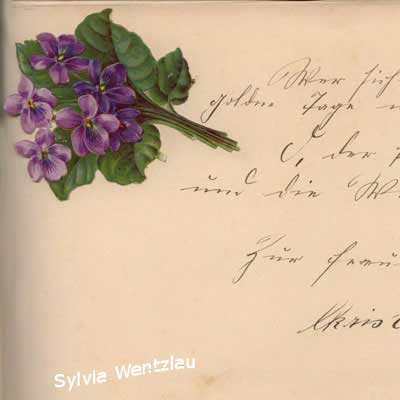 Wer sich
goldne Tage
O, der
und die W
Zur freu
Christ
Sylvia Wentzlau